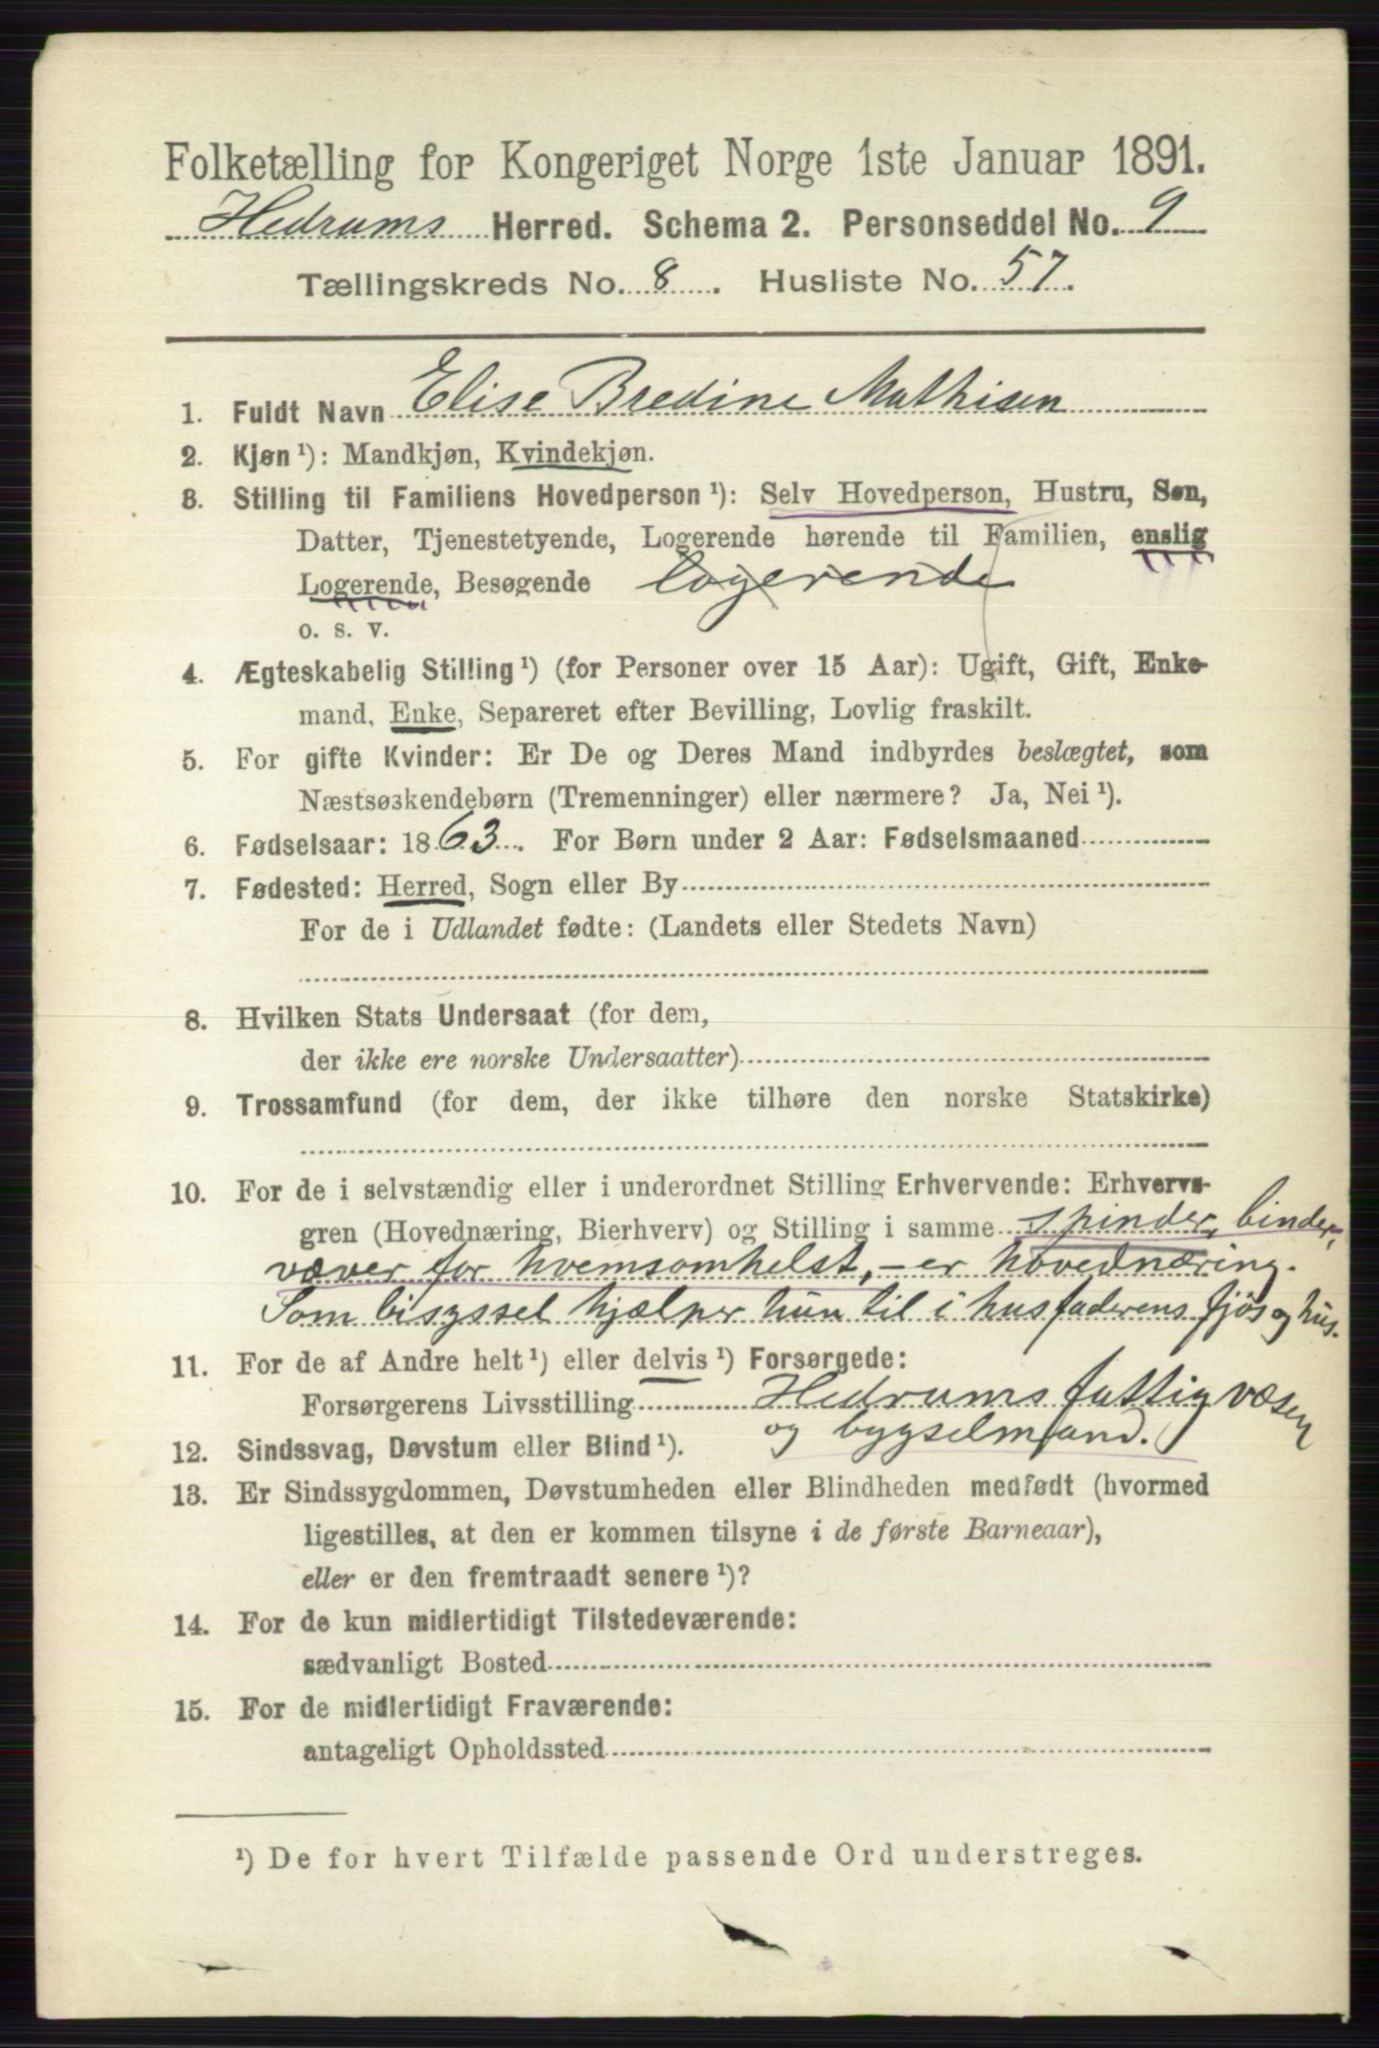 Folketælling for Kongeriget Norge 1ste Januar 1891.
Hedrums Herred. Schema 2. Personseddel No. 9
Tællingskreds No. 8. Husliste No. 57.
1. Fuldt Navn Elise Bredine Mathisen
2. Kjøn ¹): Mandkjøn, Kvindekjøn.
3. Stilling til Familiens Hovedperson ¹): Selv Hovedperson, Hustru, Søn,
Datter, Tjenestetyende, Logerende hørende til Familien, enslig
Logerende, Besøgende logerende
o. s. v.
4. Ægteskabelig Stilling ¹) (for Personer over 15 Aar): Ugift, Gift, Enke-
mand, Enke, Separeret efter Bevilling, Lovlig fraskilt.
5. For gifte Kvinder: Er De og Deres Mand indbyrdes beslægtet, som
Næstsøskendebørn (Tremenninger) eller nærmere? Ja, Nei ¹).
6. Fødselsaar: 1863. For Børn under 2 Aar: Fødselsmaaned
7. Fødested: Herred, Sogn eller By
For de i Udlandet fødte: (Landets eller Stedets Navn)
8. Hvilken Stats Undersaat (for dem,
der ikke ere norske Undersaatter)
9. Trossamfund (for dem, der ikke tilhøre den norske Statskirke)
10. For de i selvstændig eller i underordnet Stilling Erhvervende: Erhvervs-
gren (Hovednæring, Bierhverv) og Stilling i samme spinder, binder,
væver for hvemsomhelst, - er hovednæring.
Som bisyssel hjælper hun til i husfaderens fjøs og hus.
11. For de af Andre helt ¹) eller delvis ¹) Forsørgede:
Forsørgerens Livsstilling Hedrums fattigvæsen
og bygselmand.
12. Sindssvag, Døvstum eller Blind ¹).
13. Er Sindssygdommen, Døvstumheden eller Blindheden medfødt (hvormed
ligestilles, at den er kommen tilsyne i de første Barneaar),
eller er den fremtraadt senere ¹)?
14. For de kun midlertidigt Tilstedeværende:
sædvanligt Bosted
15. For de midlertidigt Fraværende:
antageligt Opholdssted
¹) De for hvert Tilfælde passende Ord understreges.